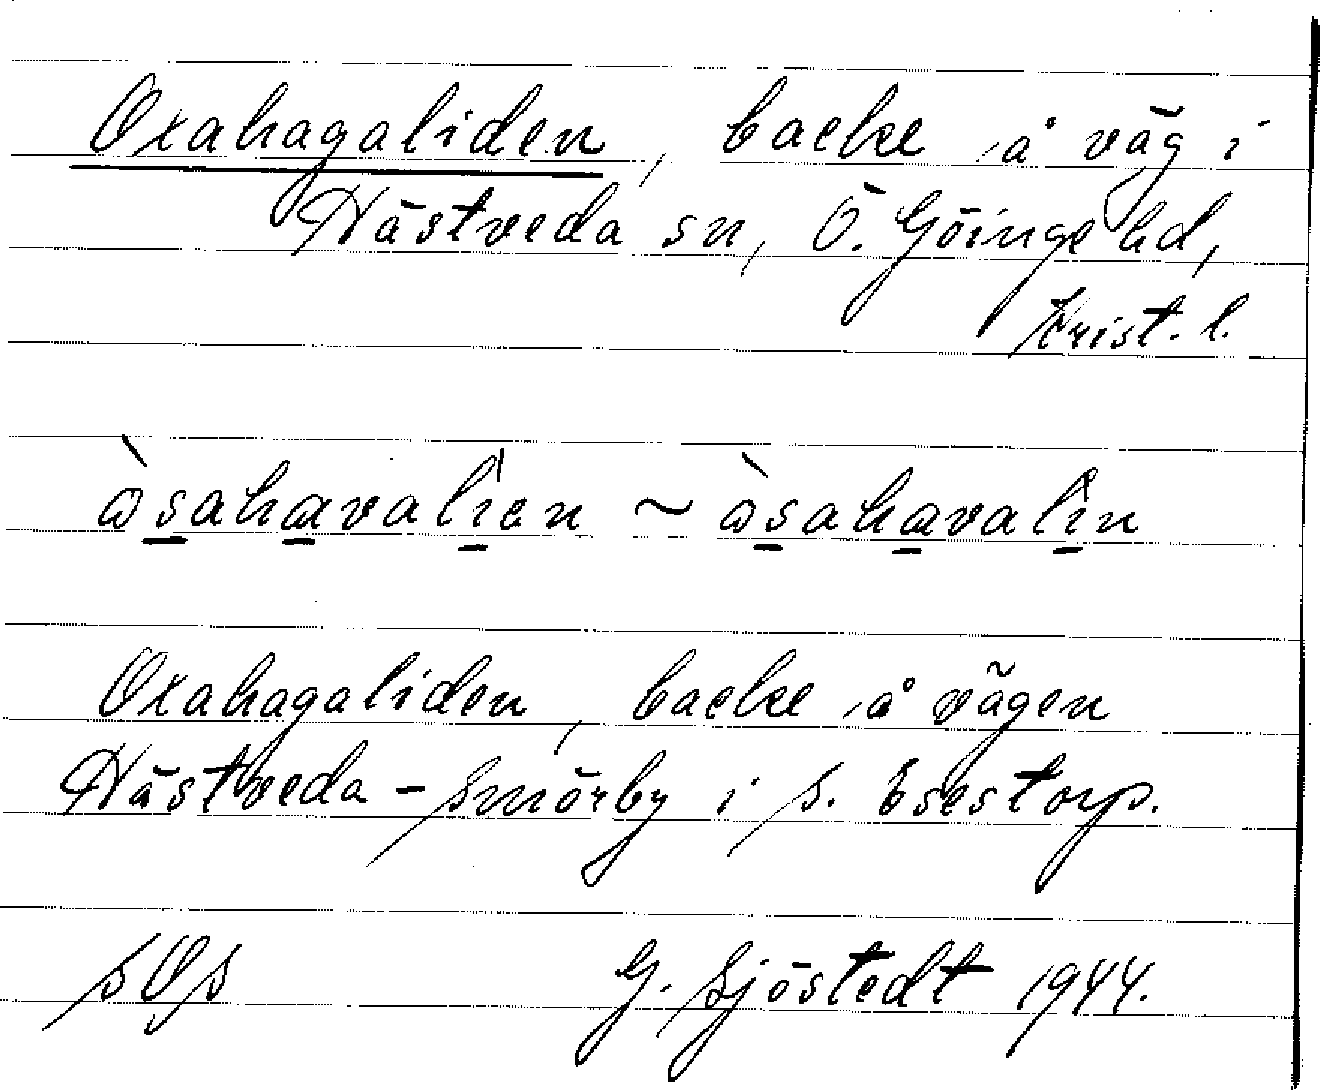 Oxahagaliden, backe å väg i
Hästveda sn, Ö. Göinge hd,
Krist. l.
ɷ̀sahavalìen ~ ɷ̀sahavalin
Oxahagaliden, backe å vägen
Hästveda - Smörby i S. Esestorp.
SOS G. Sjöstedt 1944.